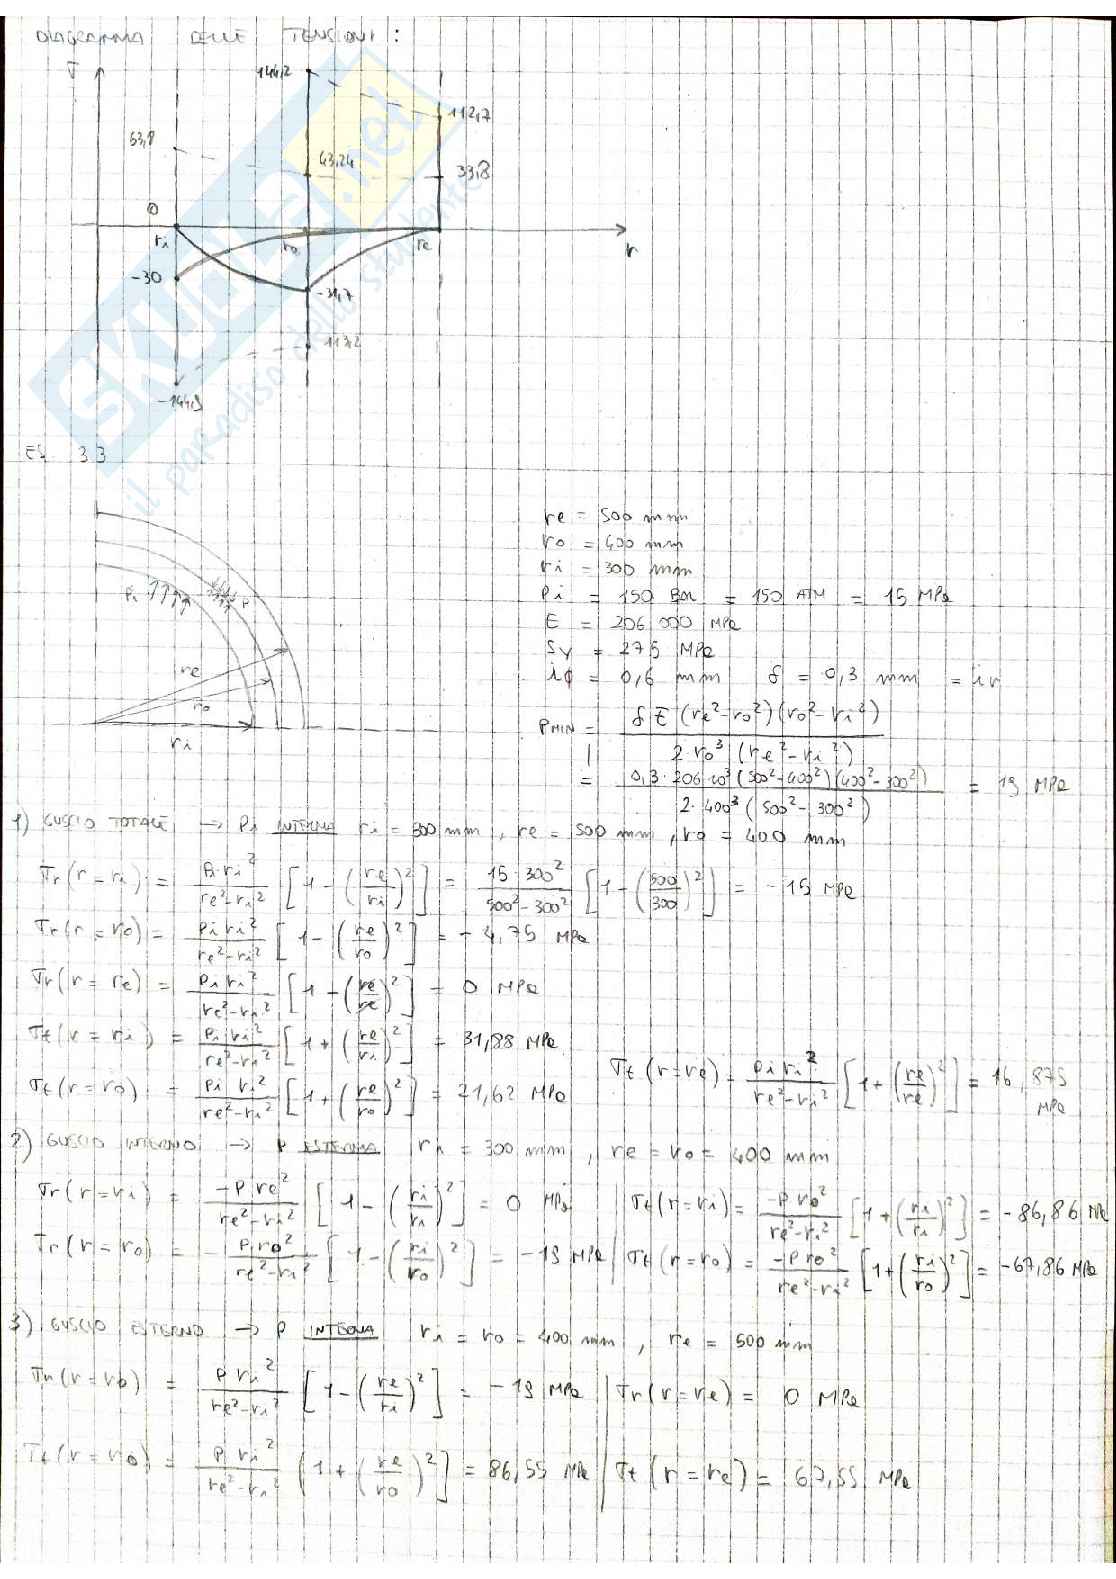 DIAGRAMMA DELLE TENSIONI :
σ
144,2
112,7
53,8
43,24
33,8
0
ri
ro
re
r
-30
-31,7
-113,2
-144,9
SKUOLA.net
il paradiso dello studente
ES 3.3
re = 500 mm
ro = 400 mm
ri = 300 mm
Pi = 150 Bar = 150 ATM = 15 MPa
E = 206 000 MPa
Sy = 275 MPa
iϕ = 0,6 mm δ = 0,3 mm = ir
Pi P
re
ro
ri
PMIN = δ E (re²-ro²)(ro²-ri²) / 2·ro³ (re²-ri²)
= 0,3·206·10³(500²-400²)(400²-300²) / 2·400³(500²-300²) = 19 MPa
1) GUSCIO TOTALE → Pi INTERNA ri = 300 mm, re = 500 mm, ro = 400 mm
σr(r=ri) = Pi·ri² / re²-ri² [1-(re/ri)²] = 15·300² / 500²-300² [1-(500/300)²] = -15 MPa
σr(r=ro) = Pi ri² / re²-ri² [1-(re/ro)²] = -4,75 MPa
σr(r=re) = Pi ri² / re²-ri² [1-(re/re)²] = 0 MPa
σt(r=ri) = Pi ri² / re²-ri² [1+(re/ri)²] = 31,88 MPa
σt(r=ro) = Pi ri² / re²-ri² [1+(re/ro)²] = 21,62 MPa
σt(r=re) = Pi ri² / re²-ri² [1+(re/re)²] = 16,875 MPa
2) GUSCIO INTERNO → P ESTERNA ri = 300 mm, re = ro = 400 mm
σr(r=ri) = -P re² / re²-ri² [1-(ri/ri)²] = 0 MPa
σt(r=ri) = -P ro² / re²-ri² [1+(ri/ri)²] = -86,86 MPa
σr(r=ro) = -P ro² / re²-ri² [1-(ri/ro)²] = -19 MPa
σt(r=ro) = -P ro² / re²-ri² [1+(ri/ro)²] = -67,86 MPa
3) GUSCIO ESTERNO → P INTERNA ri = ro = 400 mm, re = 500 mm
σr(r=ro) = P ri² / re²-ri² [1-(re/ri)²] = -19 MPa
σr(r=re) = 0 MPa
σt(r=ro) = P ri² / re²-ri² (1+(re/ro)²] = 86,55 MPa
σt(r=re) = 67,55 MPa